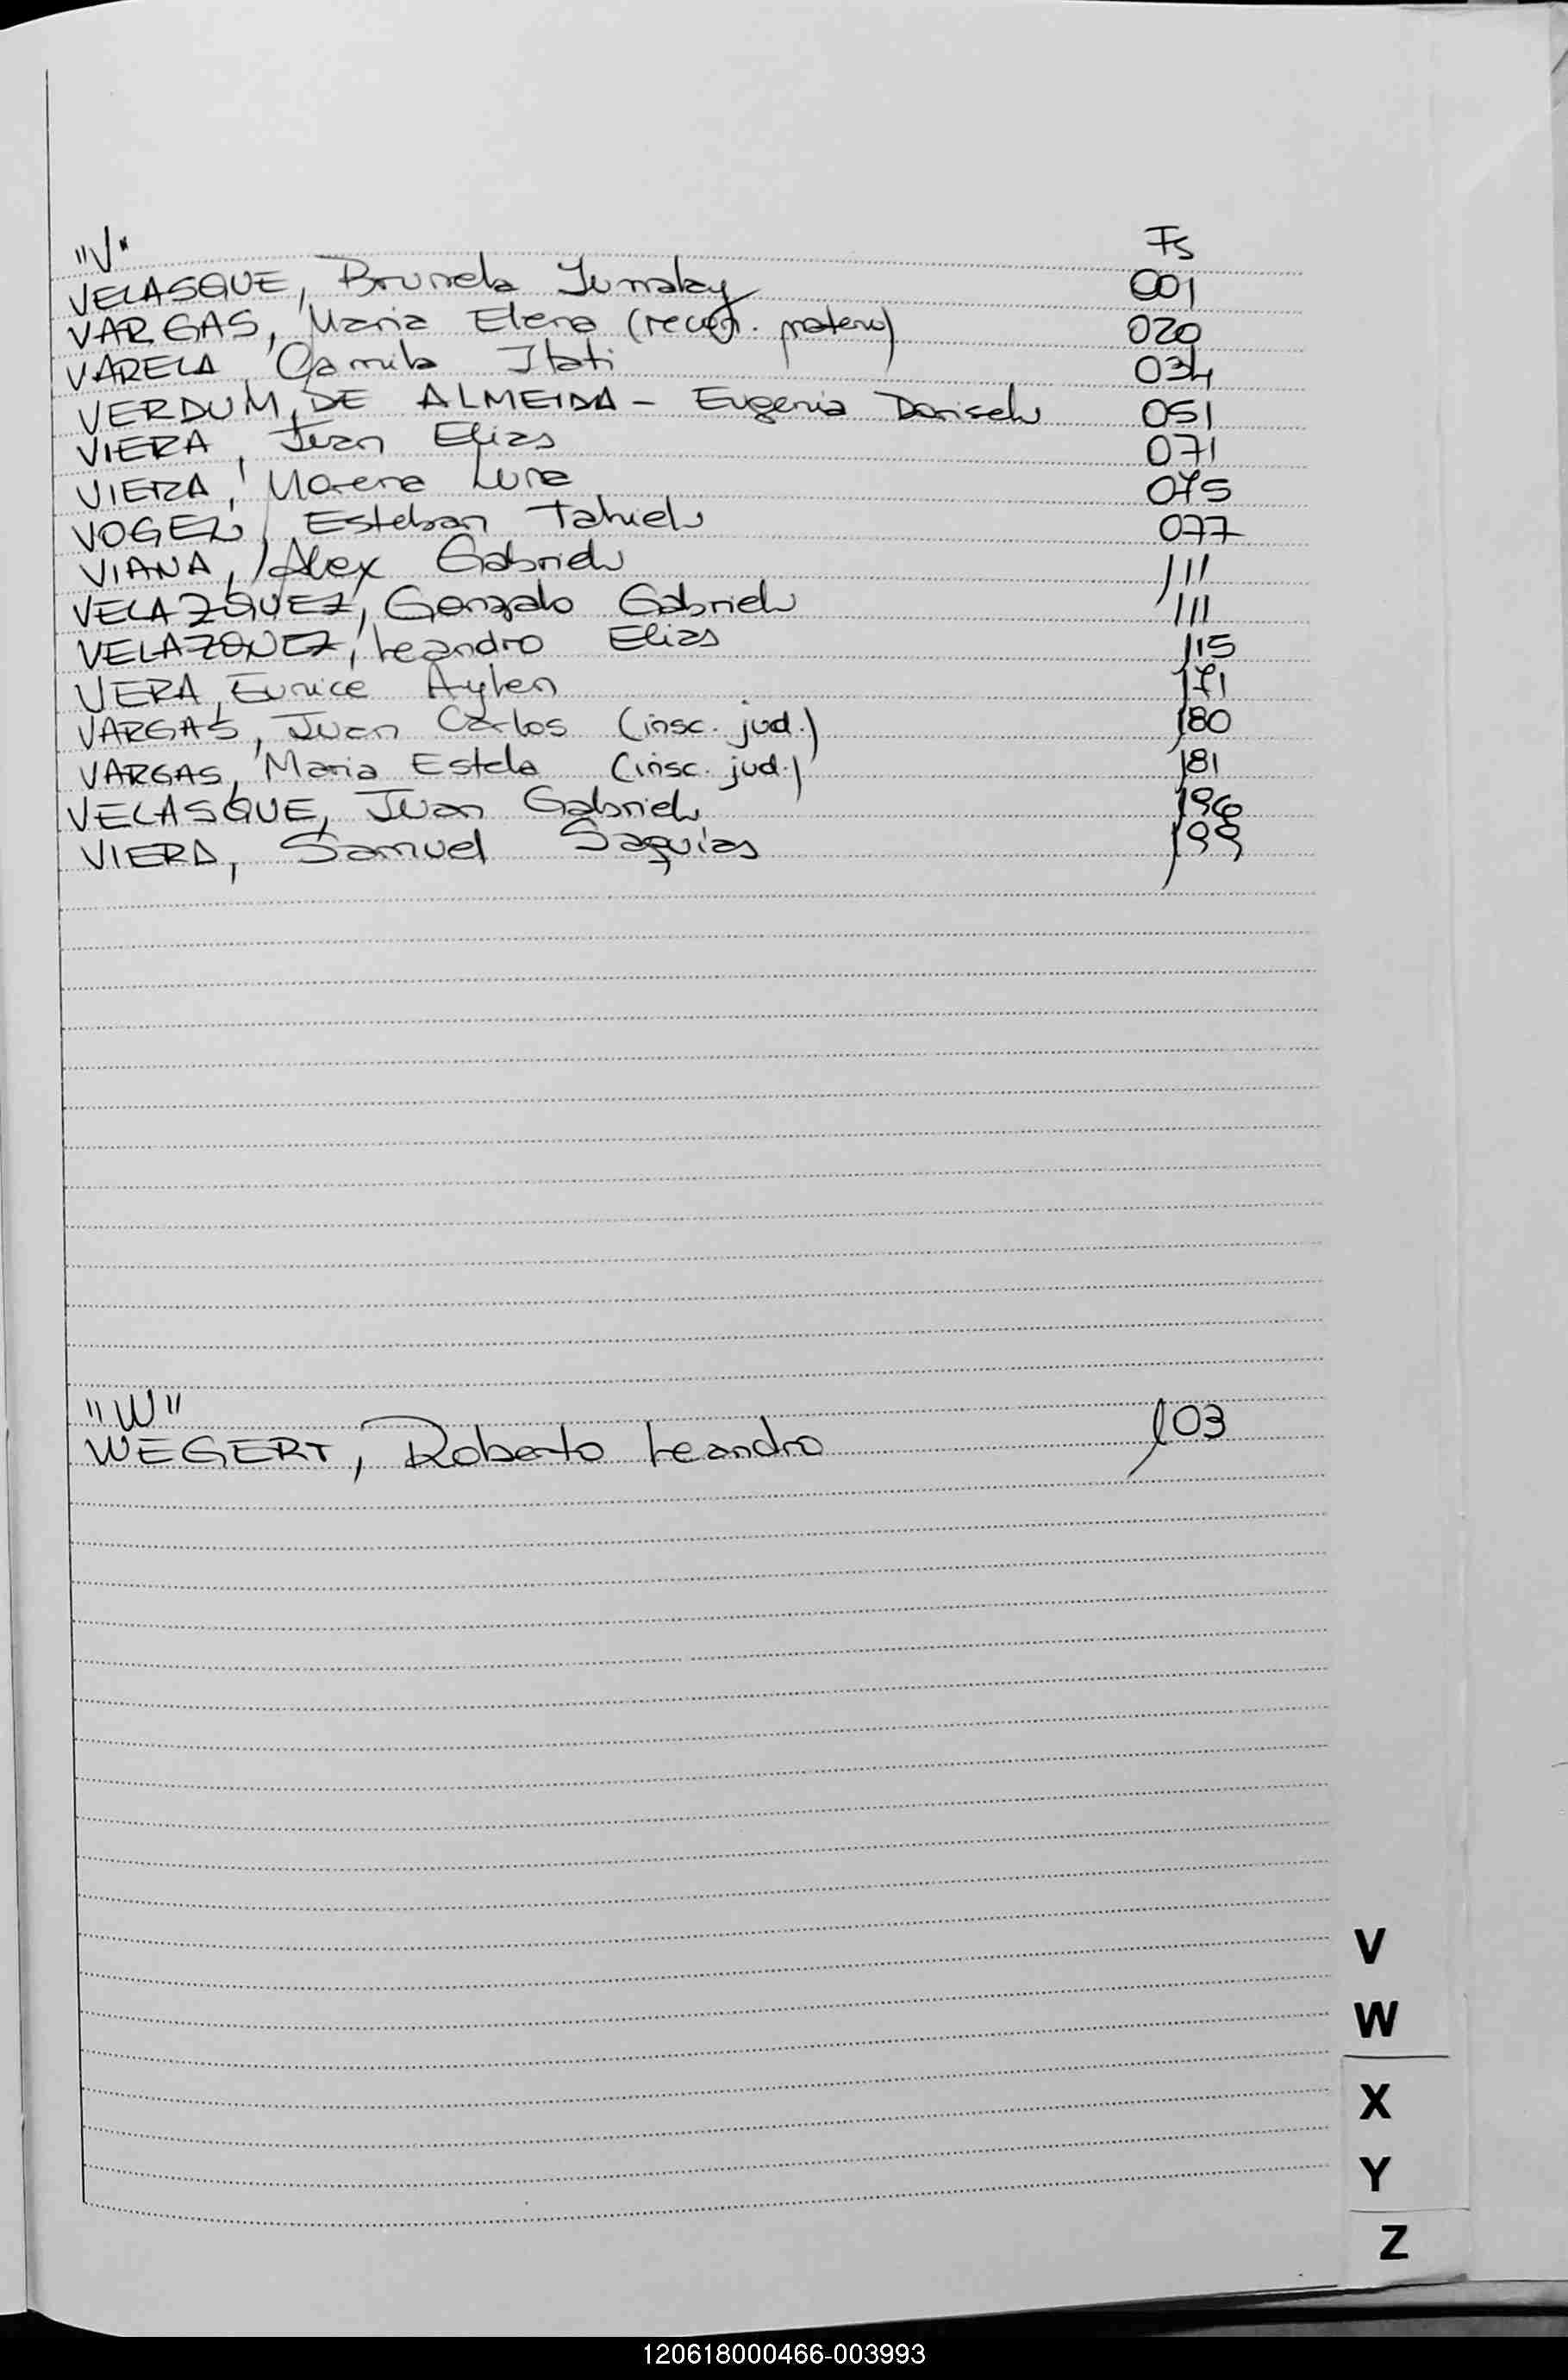 "V" Fs
VELASQUE, Brunela Jumaley 001
VARGAS, Maria Elena (recon. materno) 020
VARELA, Camila Itati 034
VERDUM, DE ALMEIDA - Eugenia Darisel 051
VIERA, Juan Elias 071
VIERA, Morena Luna 075
VOGEL, Esteban Tahiel 077
VIANA, Alex Gabriel 111
VELAZQUEZ, Gonzalo Gabriel 111
VELAZQUEZ, Leandro Elias 115
VERA, Eunice Aylen 171
VARGAS, Juan Carlos (insc. jud.) 180
VARGAS, Maria Estela (insc. jud.) 181
VELASQUE, Juan Gabriel 196
VIERA, Samuel 199
"W"
WEGERT, Roberto Leandro 103
V
W
X
Y
Z
120618000466-003993